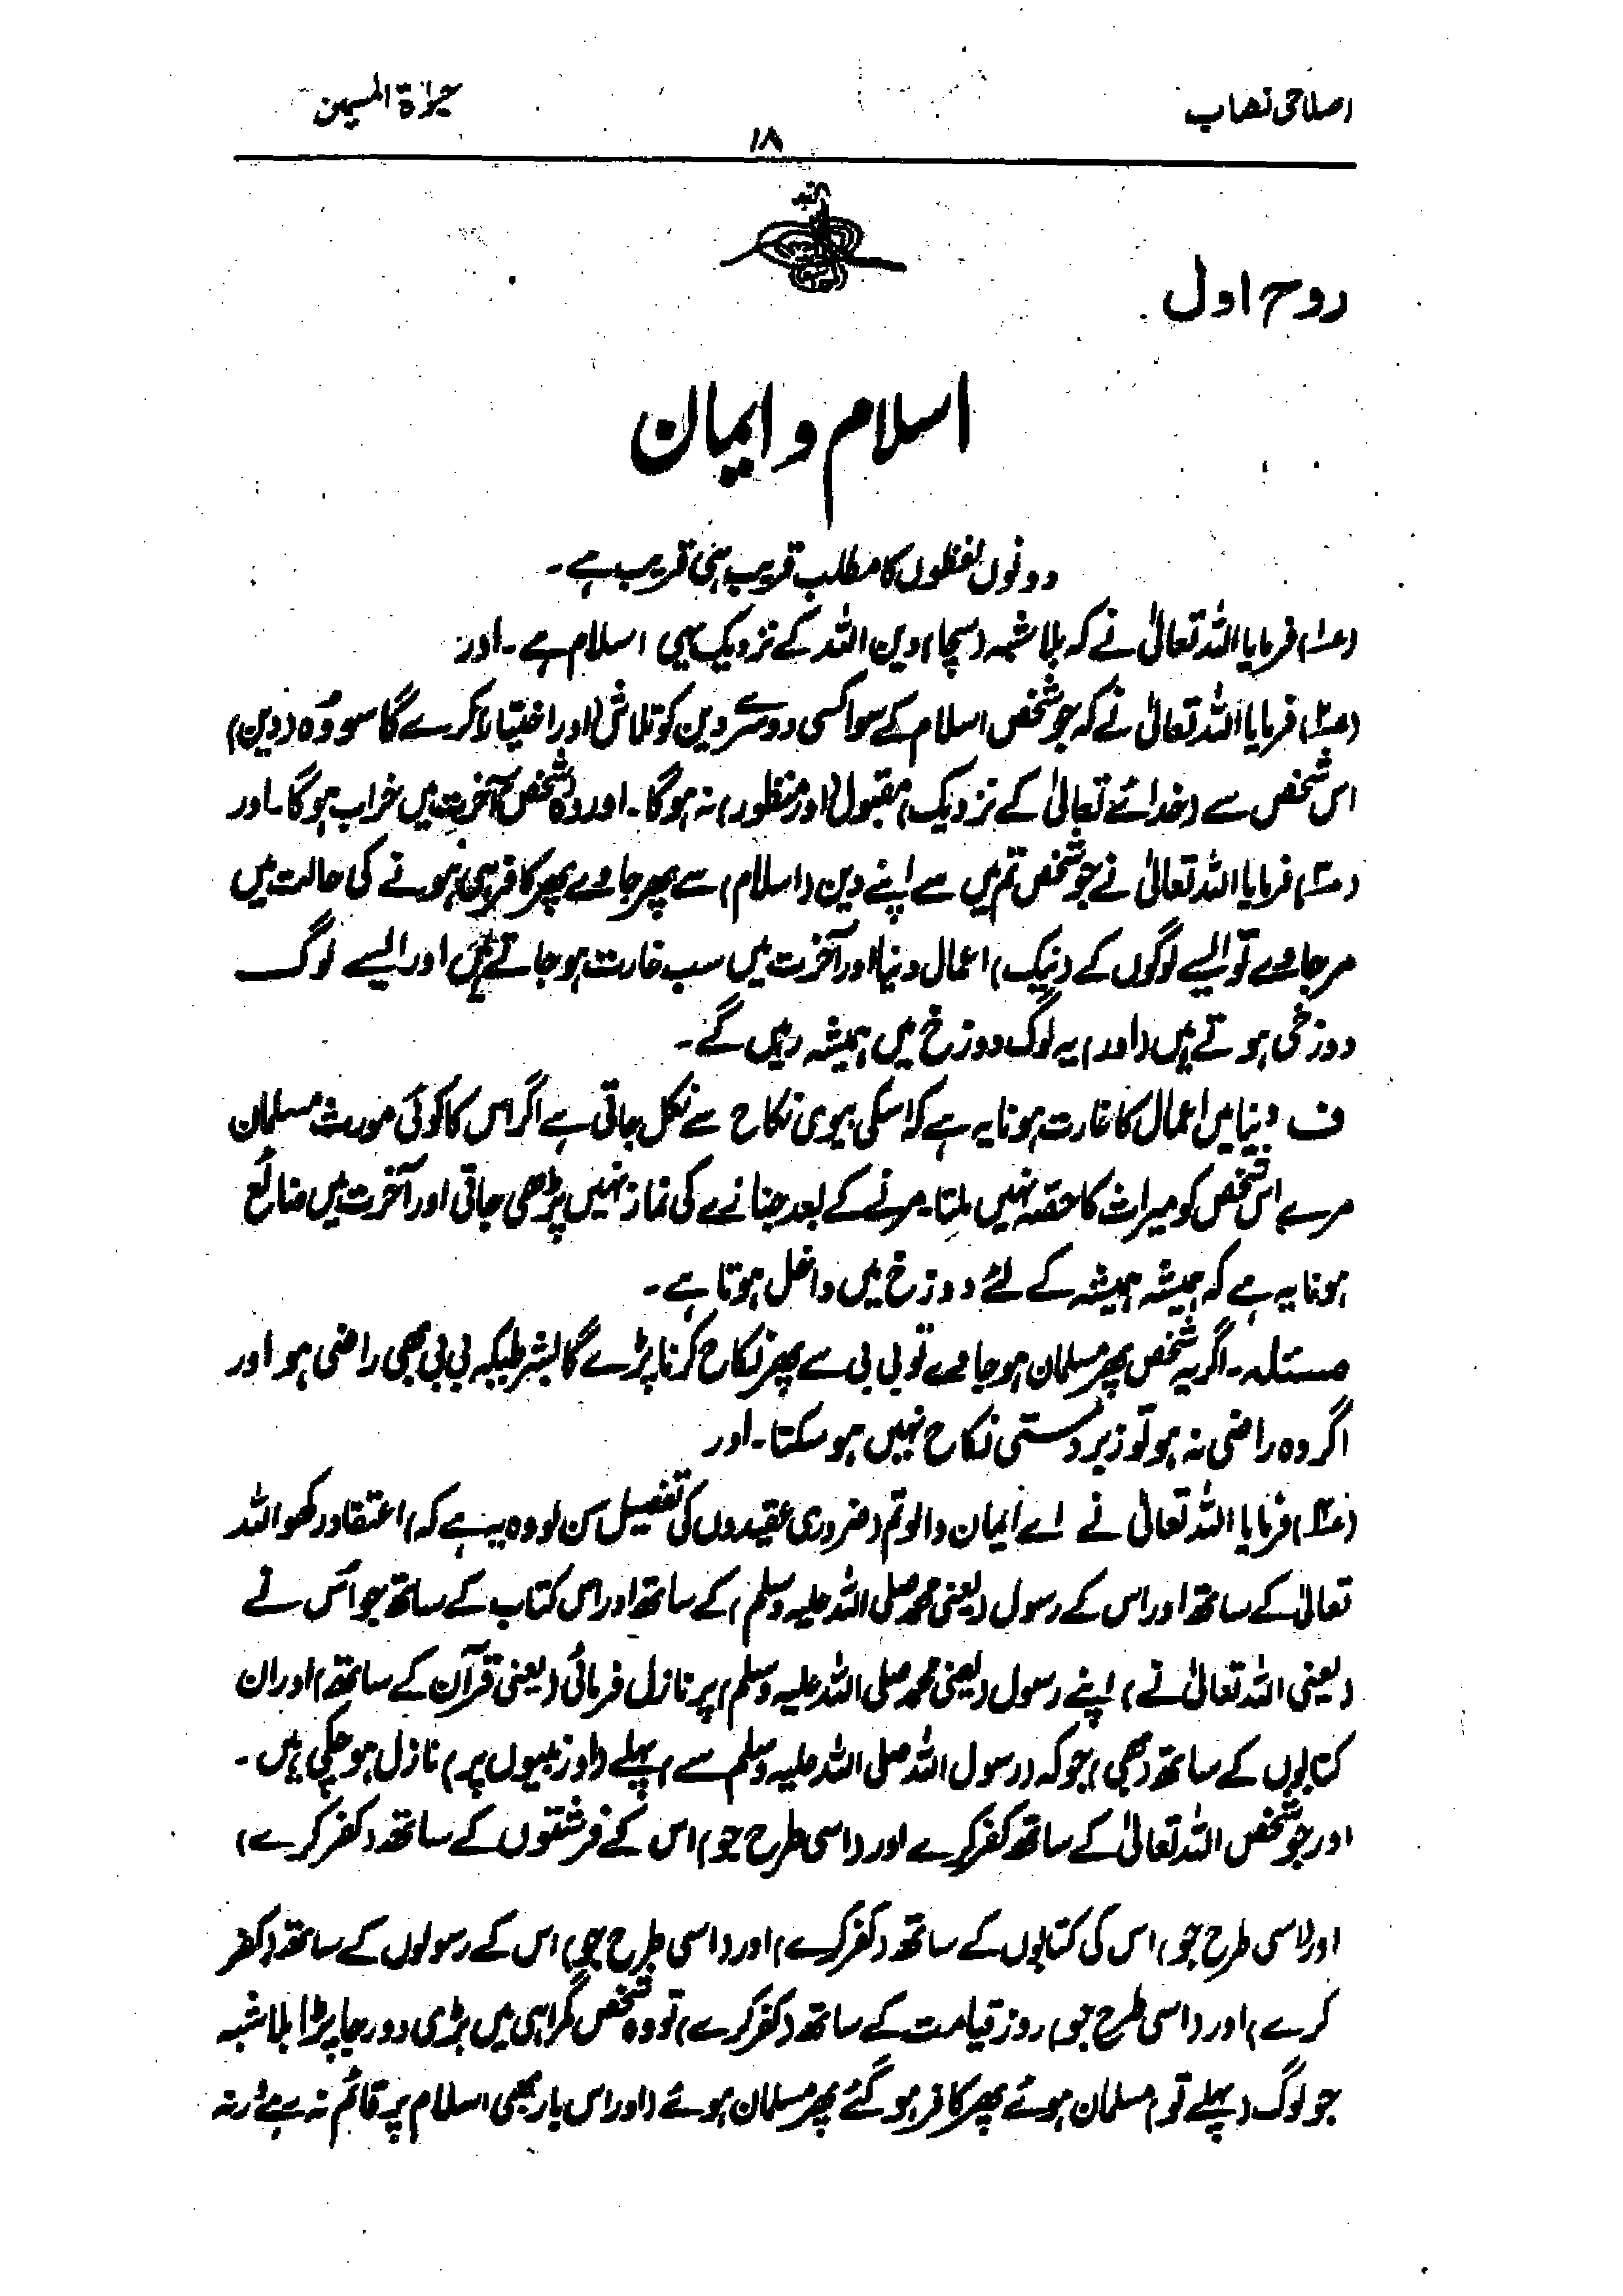 اصلاحی نصاب
حیوٰۃ المسلمین
۱۸
روح اول
اسلام و ایمان
دونوں لفظوں کا مطلب قریب ہی قریب ہے۔
(۱) فرمایا اللہ تعالیٰ نے کہ بلاشبہ (سچا) دین اللہ کے نزدیک یہی اسلام ہے۔ اور
(۲) فرمایا اللہ تعالیٰ نے کہ جو شخص اسلام کے سوا کسی دوسرے دین کو تلاش (اور اختیار) کرے گا سو وہ (دین)
اس شخص سے (خدائے تعالیٰ کے نزدیک) مقبول (اور منظور) نہ ہوگا۔ اور وہ شخص آخرت میں خراب ہوگا۔ اور
(۳) فرمایا اللہ تعالیٰ نے جو شخص تم میں سے اپنے دین (اسلام) سے پھر جاوے پھر کافر ہی ہونے کی حالت میں
مرجاوے تو ایسے لوگوں کے (نیک) اعمال دنیا اور آخرت میں سب غارت ہو جاتے ہیں اور ایسے لوگ
دوزخی ہوتے ہیں (اور) یہ لوگ دوزخ میں ہمیشہ رہیں گے۔
ف دنیا میں اعمال کا غارت ہونا یہ ہے کہ اسکی بیوی نکاح سے نکل جاتی ہے اگر اس کا کوئی مورث مسلمان
مرے اس شخص کو میراث کا حصہ نہیں ملتا۔ مرنے کے بعد جنازے کی نماز نہیں پڑھی جاتی اور آخرت میں ضائع
ہونا یہ ہے کہ ہمیشہ ہمیشہ کے لئے دوزخ میں داخل ہوتا ہے۔
مسئلہ۔ اگر یہ شخص پھر مسلمان ہو جاوے تو بی بی سے پھر نکاح کرنا پڑے گا بشرطیکہ بی بی بھی راضی ہو اور
اگر وہ راضی نہ ہو تو زبردستی نکاح نہیں ہو سکتا۔ اور
(۴) فرمایا اللہ تعالیٰ نے اے ایمان والو تم (ضروری عقیدوں کی تفصیل سن لو وہ یہ ہے کہ) اعتقاد رکھو اللہ
تعالیٰ کے ساتھ اور اس کے رسول (یعنی محمد صلی اللہ علیہ وسلم) کے ساتھ اور اس کتاب کے ساتھ جو اُس نے
(یعنی اللہ تعالیٰ نے) اپنے رسول (یعنی محمد صلی اللہ علیہ وسلم) پر نازل فرمائی (یعنی قرآن کے ساتھ) اور ان
کتابوں کے ساتھ (بھی) جو کہ (رسول اللہ صلی اللہ علیہ وسلم سے) پہلے (اور نبیوں پر) نازل ہو چکی ہیں۔
اور جو شخص اللہ تعالیٰ کے ساتھ کفر کرے اور (اسی طرح جو) اس کے فرشتوں کے ساتھ (کفر کرے)
اور (اسی طرح جو) اس کی کتابوں کے ساتھ (کفر کرے) اور (اسی طرح جو) اس کے رسولوں کے ساتھ (کفر
کرے) اور (اسی طرح جو) روز قیامت کے ساتھ (کفر کرے) تو وہ شخص گمراہی میں بڑی دور جا پڑا بلاشبہ
جو لوگ (پہلے تو) مسلمان ہوئے پھر کافر ہو گئے پھر مسلمان ہوئے (اور اس بار بھی اسلام پر قائم نہ رہے ورنہ